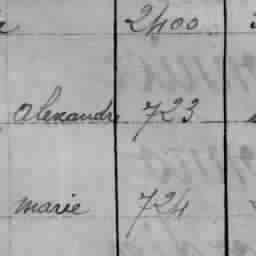 2400
alexandre 723
marie 724